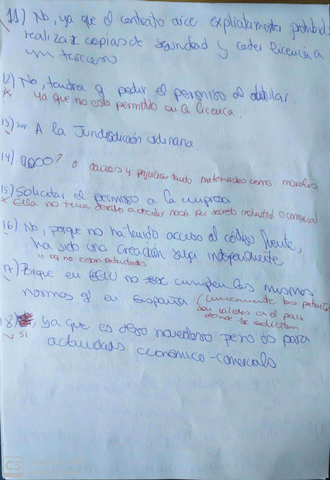 11) No, ya que el contrato dice explicitamente prohibido
realizar copias de seguridad y ceder licencia a
un tercero
12) No, tendra q pedir el permiso al titular.
ya que no esta permitido en la licencia.
13) A la Jurisdicción ordinaria
14) 9800? o daños y perjuicios tanto materiales como morales
15) Solicitar el permiso a la empresa
Ella no tenia derecho a acceder nada por secreto industrial o comercial
16) No, porque no ha tenido acceso al código fuente,
ha sido una creación suya independiente
y así no están patentados
17) Porque en EEUU no se cumplen las mismas
normas q en España (únicamente las patentes
son validas en el pais
donde se solicitan
18) , ya que es algo novedoso pero es para
sí
actividades económico-comerciales
CS